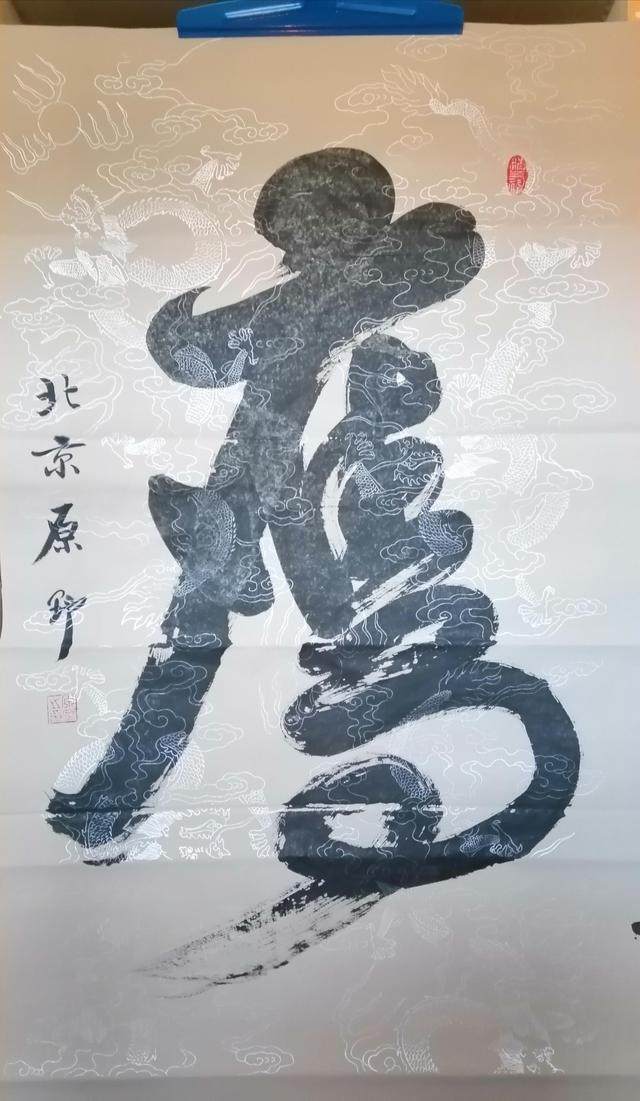 鹰
北京原野